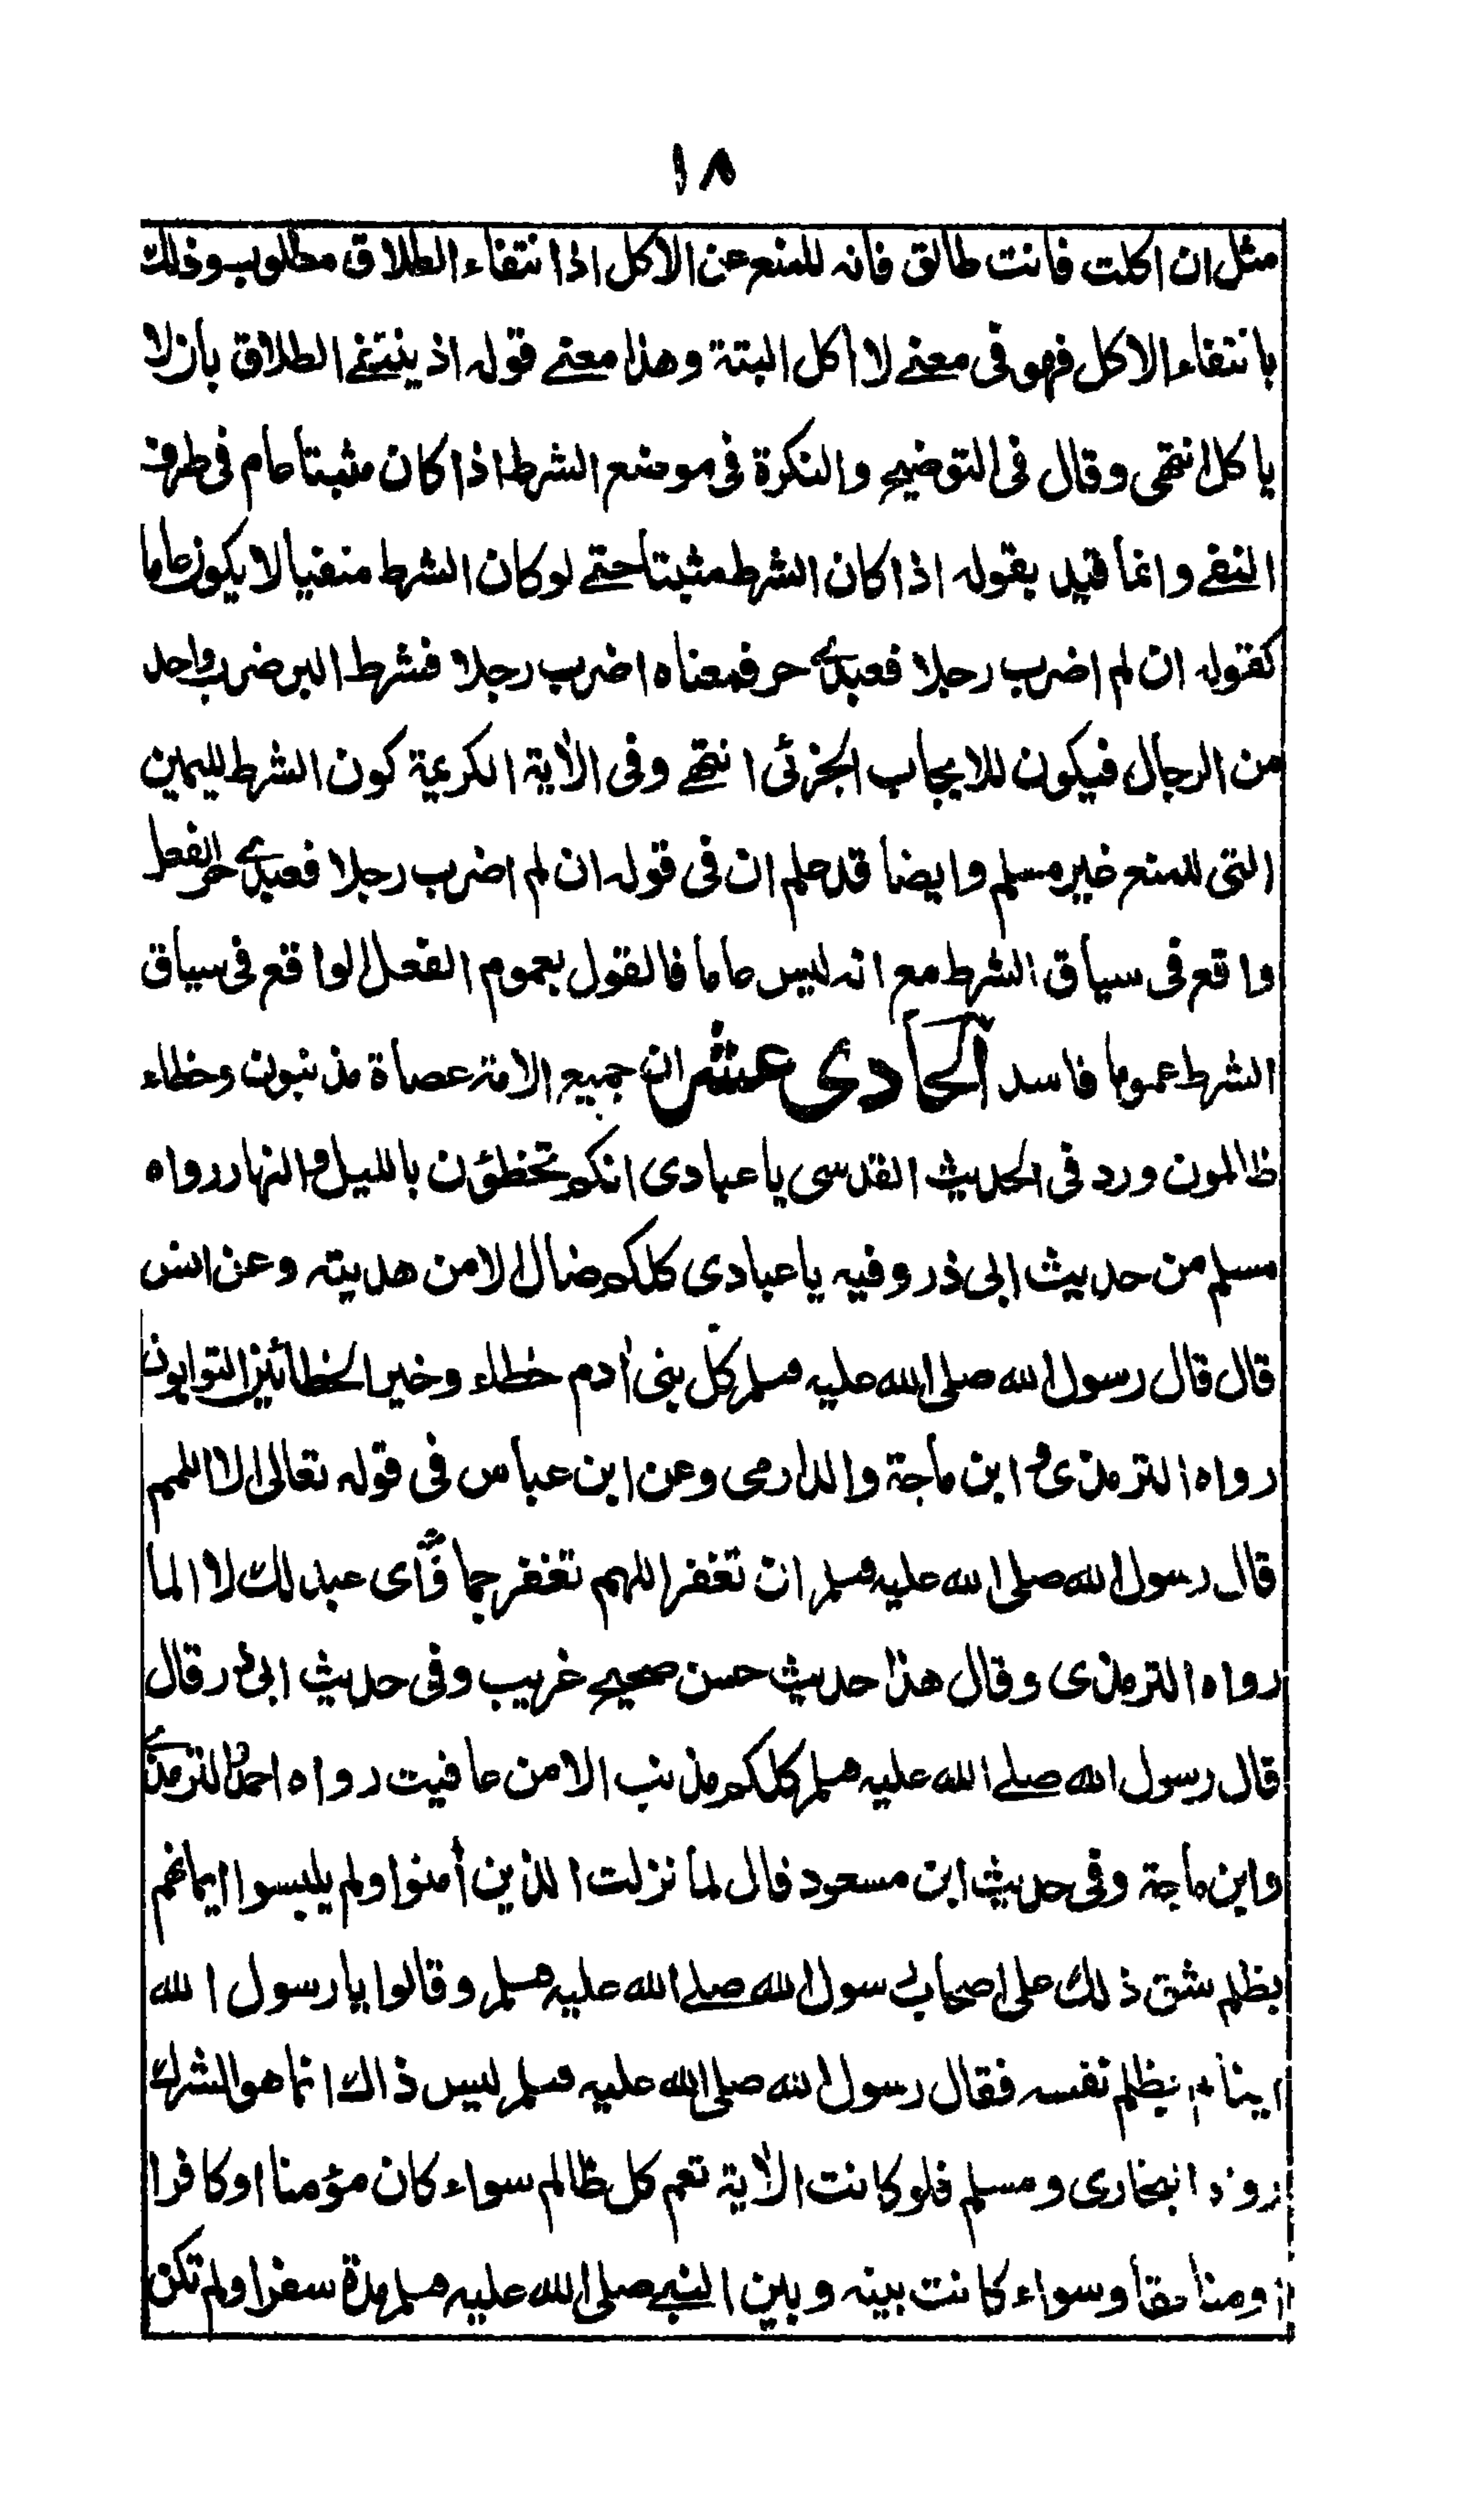 ١٨
مثل ان اكلت فانت طالق فانه للمنع عن الاكل اذا نتفاء الطلاق مطلوب وذلك
بانتفاء الاكل فهو فى معنے لا اكل البتة وهذا معنے قوله اذ ينتفے الطلاق بان لا
ياكل انتهى وقال فى التوضيح والنكرة فى موضع الشرط اذا كان مثبتا عام فى طرف
النفے وانما قيد بقوله اذا كان الشرط مثبتا حتے لو كان الشرط منفيا لا يكون عاما
كقوله ان لم اضرب رجلا فعبدے حر فمعناه اضرب رجلا فشرط البر ضرب واحد
من الرجال فيكون للايجاب الجزئى انتهے وفى الأية الكريمة كون الشرط لليمين
التى للمنع غير مسلم وايضا قد علم ان فى قوله ان لم اضرب رجلا فعبدے حر الفعل
واقع فى سياق الشرط مع انه ليس عاما فالقول بعموم الفعل الواقع فى سياق
الشرط عموما فاسد الحادى عشر ان جميع الامة عصاة مذنبون وخطاء
ظالمون ورد فى الحديث القدسى يا عبادى انكم تخطؤن بالليل والنهار رواه
مسلم من حديث ابى ذر وفيه يا عبادى كلكم ضال الا من هديته وعن انس
قال قال رسول الله صلى الله عليه وسلم كل بنى أدم خطاء وخير الخطائين التوابون
رواه الترمذى و ابن ماجة والدارمى وعن ابن عباس فى قوله تعالى الا اللمم
قال رسول الله صلى الله عليه وسلم ان تغفر اللهم تغفر جما وّاى عبد لك لا الما
رواه الترمذى وقال هذا حديث حسن صحيح غريب وفى حديث ابى ذر قال
قال رسول الله صلے الله عليه وسلم كلكم مذنب الا من عافيت رواه احمد والترمذى
وابن ماجة وفى حديث ابن مسعود قال لما نزلت الذين أمنوا ولم يلبسوا ايمانهم
بظلم شق ذلك على اصحاب رسول الله صلے الله عليه وسلم وقالوا يا رسول الله
اينا لم يظلم نفسه فقال رسول الله صلى الله عليه وسلم ليس ذاك انما هو الشرك
رواه البخارى ومسلم فلو كانت الأية تعم كل ظالم سواء كان مؤمنا او كافرا
او منافقا وسواء كانت بينه وبين النبے صلى الله عليه وسلم مدة سفر او لم تكن